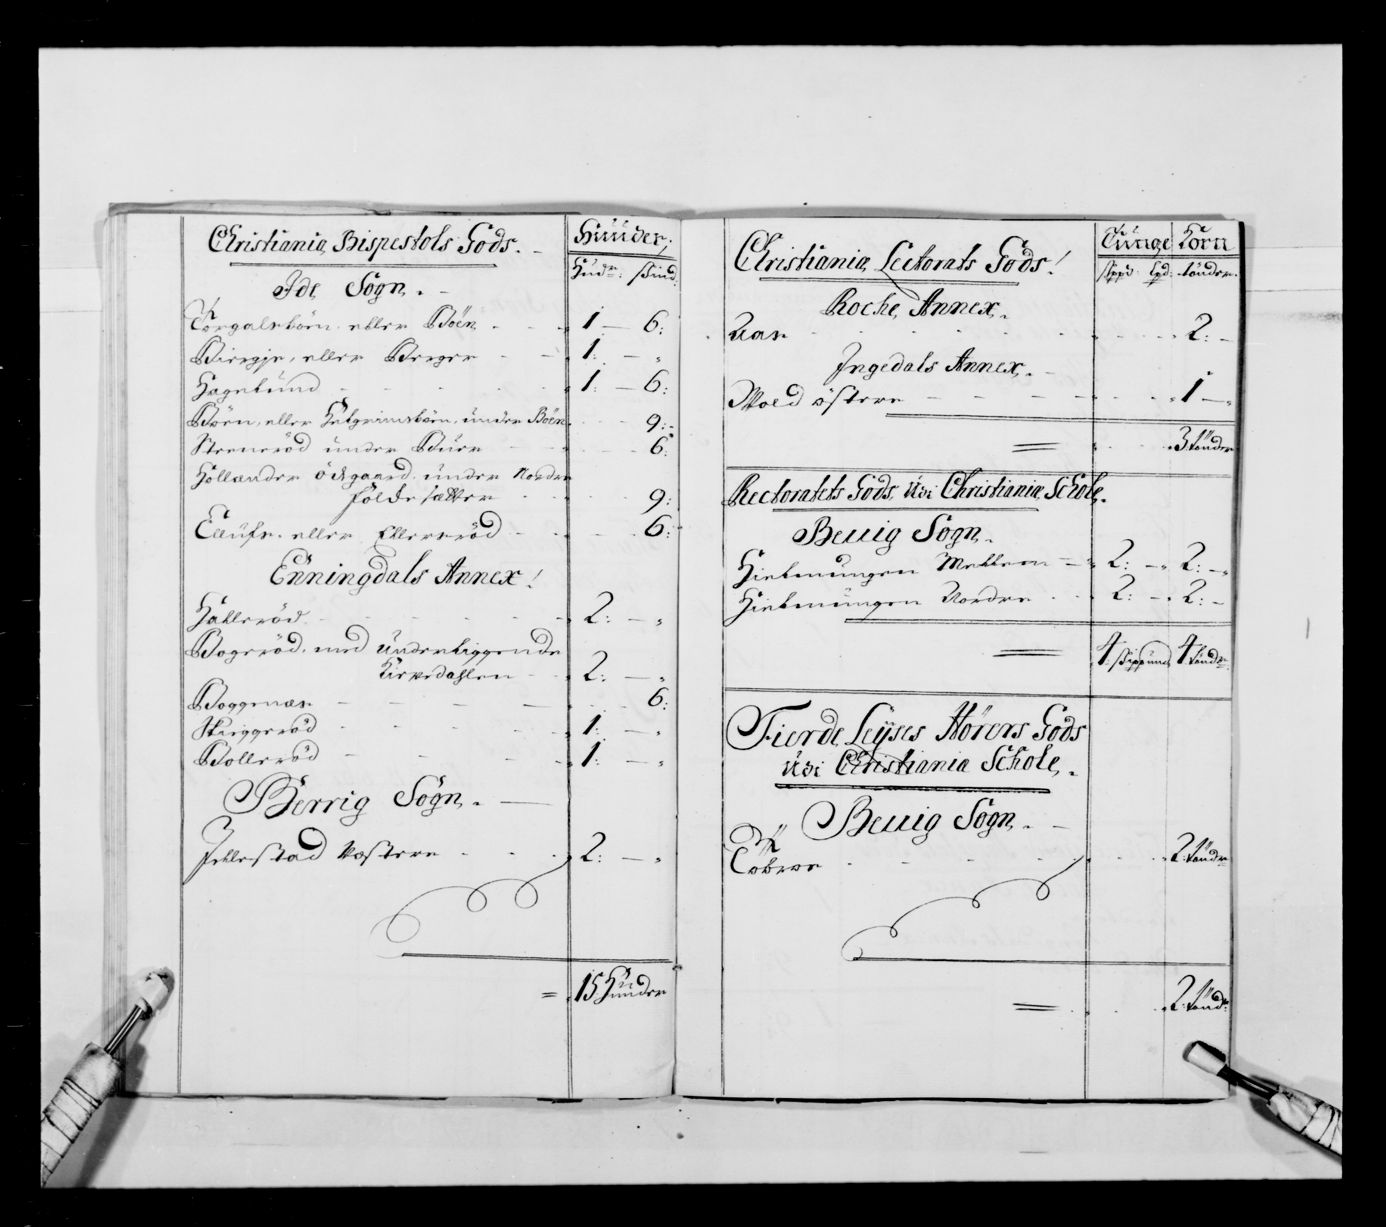 Christiania Bispestols Gods. -
Huuder,
Hudr: skind:
Ide Sogn. -
Torgalsbön eller Böen - - - 1 - 6:
Biregje, eller Berger - - 1: - "
Hagelund - - - - - 1 - 6:
Böen, eller Helgrimsböen, under Böen - - 9:-
Steneröd under Buer - - - 6:
Hollender ödegaard under Nordre
folde sætter - - - 9:
Elleröd - - - 6:
Enningdals Annex!
Halleröd - - - - - 2: - "
Bogeröd med underliggende
Kirvedahlen - - 2: - "
Boggenæs - - - - - 6:
Skiggeröd - - - - 1: - "
Bolleröd - - - - 1: - "
Berrig Sogn. -
Jellestad Vestere - - - 2: - "
= 15 Huuder
Christiania Lectorats Gods!
Tunge Korn
skpd: lpd: tönder.
Rocke Annex. -
Aas - - - - - 2: -
Ingedals Annex. -
Wold östere - - - - 1 - "
= 3 tönder
Rectoratets Gods Udi Christiania Schole.
Beuig Sogn. -
Hielmungen Mellem - 2: - " 2: - "
Hielmungen Nordre - - 2: - " 2: -
= 4 skippund 4 tönder
Fierde Leÿses Hörers Gods
Udi Christiania Schole. -
Beuig Sogn. -
- - - - 2: töndr
= 2: tönd: